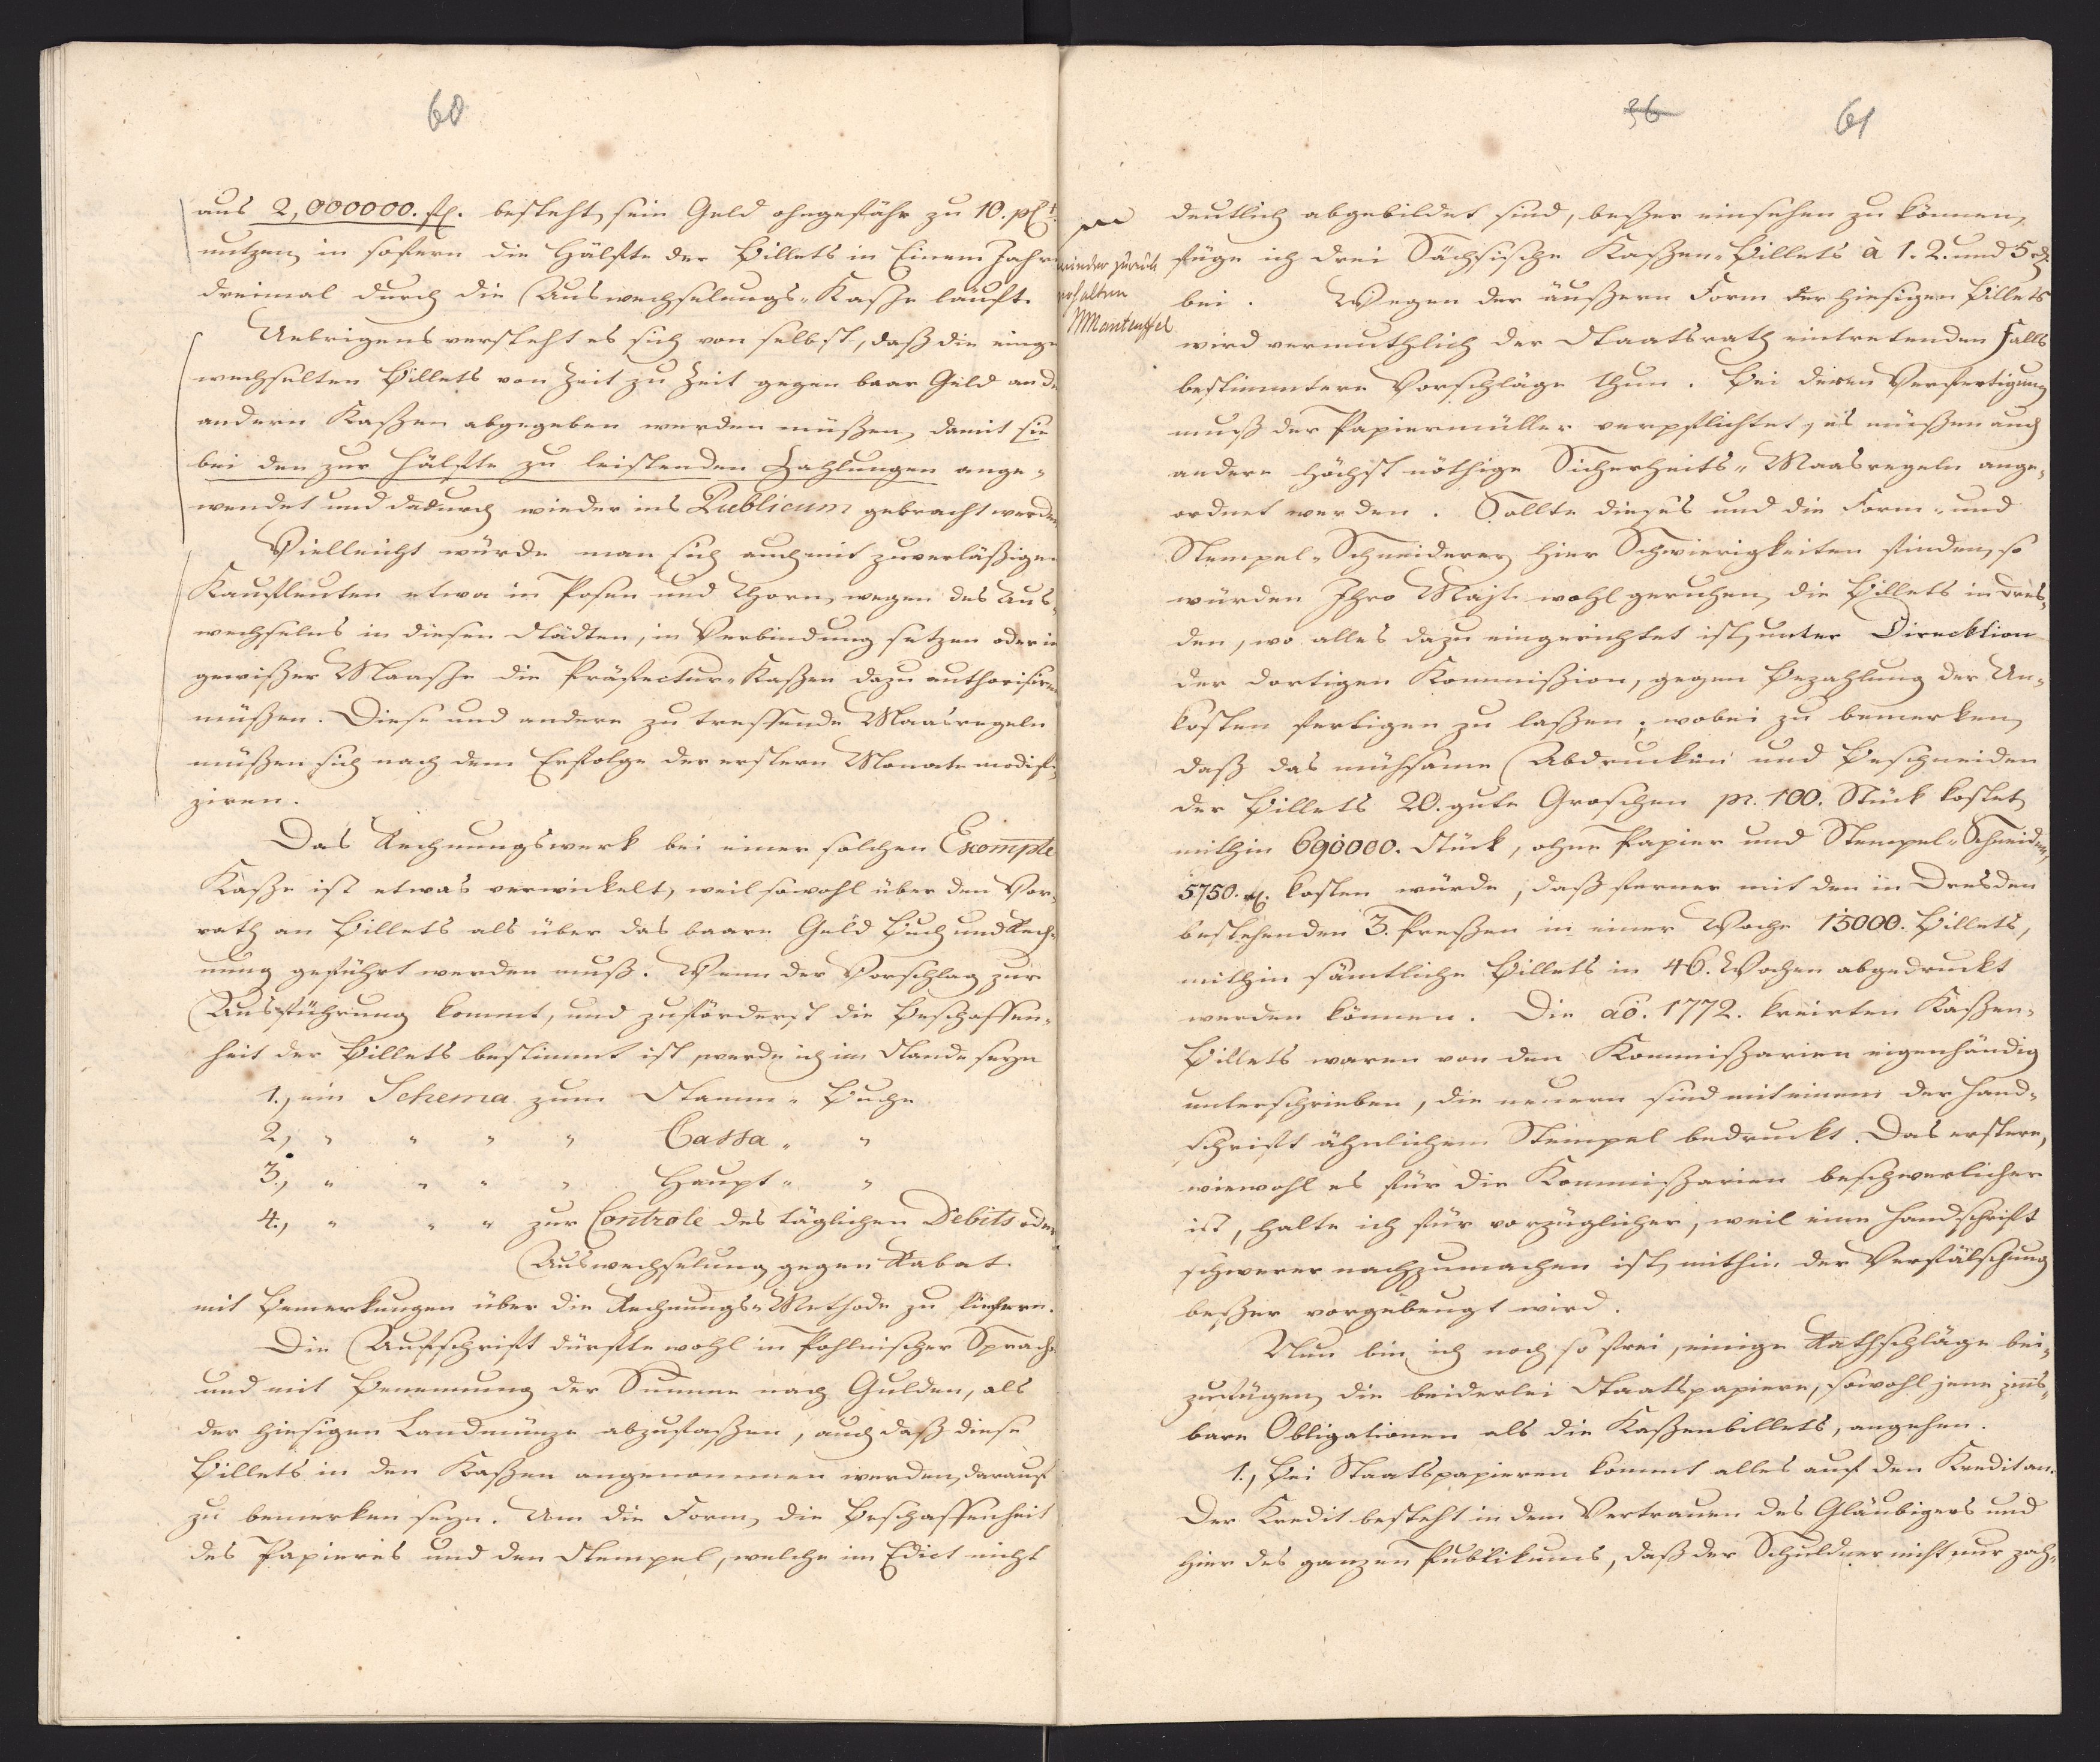 60
aus 2,000000. fl. besteht, sein Geld ohngefähr zu 10. pCt.
nutzen, in sofern die Hälfte der Billets in Einem Jahre
dreimal durch die Auswechselungs-Kasse läuft.
Uebrigens versteht es sich von selbst, daß die einge-
wechselten Billets von Zeit zu Zeit gegen baar Geld an die
andern Kaßen abgegeben werden müßen, damit sie
bei den zur Hälfte zu leistenden Zahlungen ange-
wendet und dadurch wieder ins Publicum gebracht werden
Vielleicht würde man sich auch mit zuverläßigen
Kaufleuten etwa in Posen und Thorn, wegen des Aus-
wechselns in diesen Städten, in Verbindung setzen oder in
gewißer Maaße die Präfectur-Kaßen dazu authorisiren
müßen. Diese und andere zu treffende Maasregeln
müßen sich nach dem Erfolge der erstern Monate modifi-
ziren.
Das Rechnungswerk bei einer solchen Escompte
Kaße ist etwas verwickelt, weil sowohl über den Vor-
rath an Billets als über das baare Geld Buch und Rech-
nung geführt werden muß. Wenn der Vorschlag zur
Ausführung kommt, und zuförderst die Beschaffen-
heit der Billets bestimmt ist, werde ich im Stande seyn
1., ein Schema zum Stamm-Buche
2., " " " " Cassa- "
3., " " " " Haupt- "
4., " " " zur Controle des täglichen Debits oder
Auswechselung gegen Rabat.
mit Bemerkungen über die Rechnungs-Methode zu liefern.
Die Aufschrift dürfte wohl in Pohlnischer Sprache
und mit Benennung der Summe nach Gulden, als
der hiesigen Landmünze abzufaßen, auch daß diese
Billets in den Kaßen angenommen werden, darauf
zu bemerken seyn. Um die Form, die Beschaffenheit
des Papieres und den Stempel, welche im Edict nicht
36 61
wieder zurück
erhalten
MManteuffel
deutlich abgebildet sind, beßer einsehen zu können,
füge ich drei Sächsische Kaßen-Billets à 1. 2. und 5 rl.
bei. Wegen der äußern Form der hiesigen Billets
wird vermuthlich der Staatsrath eintretenden Falls
bestimmtere Vorschläge thun. Bei deren Verfertigung
muß der Papiermüller verpflichtet, es müßen auch
andere höchst nöthige Sicherheits-Maasregeln ange-
ordnet werden. Sollte dieses und die Form- und
Stempel-Schneiderey hier Schwierigkeiten finden, so
würden Ihro Majt. wohl geruhen, die Billets in Dres-
den, wo alles dazu eingerichtet ist, unter Direcktion
der dortigen Kommißion, gegen Bezahlung der Un-
kosten fertigen zu laßen; wobei zu bemerken,
daß das mühsame Abdrucken und Beschneiden
der Billets 20. gute Groschen pr. 100. Stück kostet,
mithin 690000. Stück, ohne Papier und Stempel-Schneiden,
5750. rl. kosten würde, daß ferner mit den in Dresden
bestehenden 3. Preßen in einer Woche 15000. Billets,
mithin sämtliche Billets in 46. Wochen abgedruckt
werden können. Die ao. 1772. kreirten Kaßen-
Billets waren von den Kommißarien eigenhändig
unterschrieben, die neuern sind mit einem der Hand-
schrift ähnlichem Stempel bedruckt. Das erstere,
wiewohl es für die Kommißarien beschwerlicher
ist, halte ich für vorzüglicher, weil eine Handschrift
schwerer nachzumachen ist, mithin der Verfälschung
beßer vorgebeugt wird.
Nun bin ich noch so frei, einige Rathschläge bei-
zufügen, die beiderlei Staatspapiere, sowohl jene zins-
bare Obligationen als die Kaßenbillets, angehen.
1., Bei Staatspapieren kommt alles auf den Kredit an.
Der Kredit besteht in dem Vertrauen des Gläubigers und
hier des ganzen Publikums, daß der Schuldner nicht nur zah-